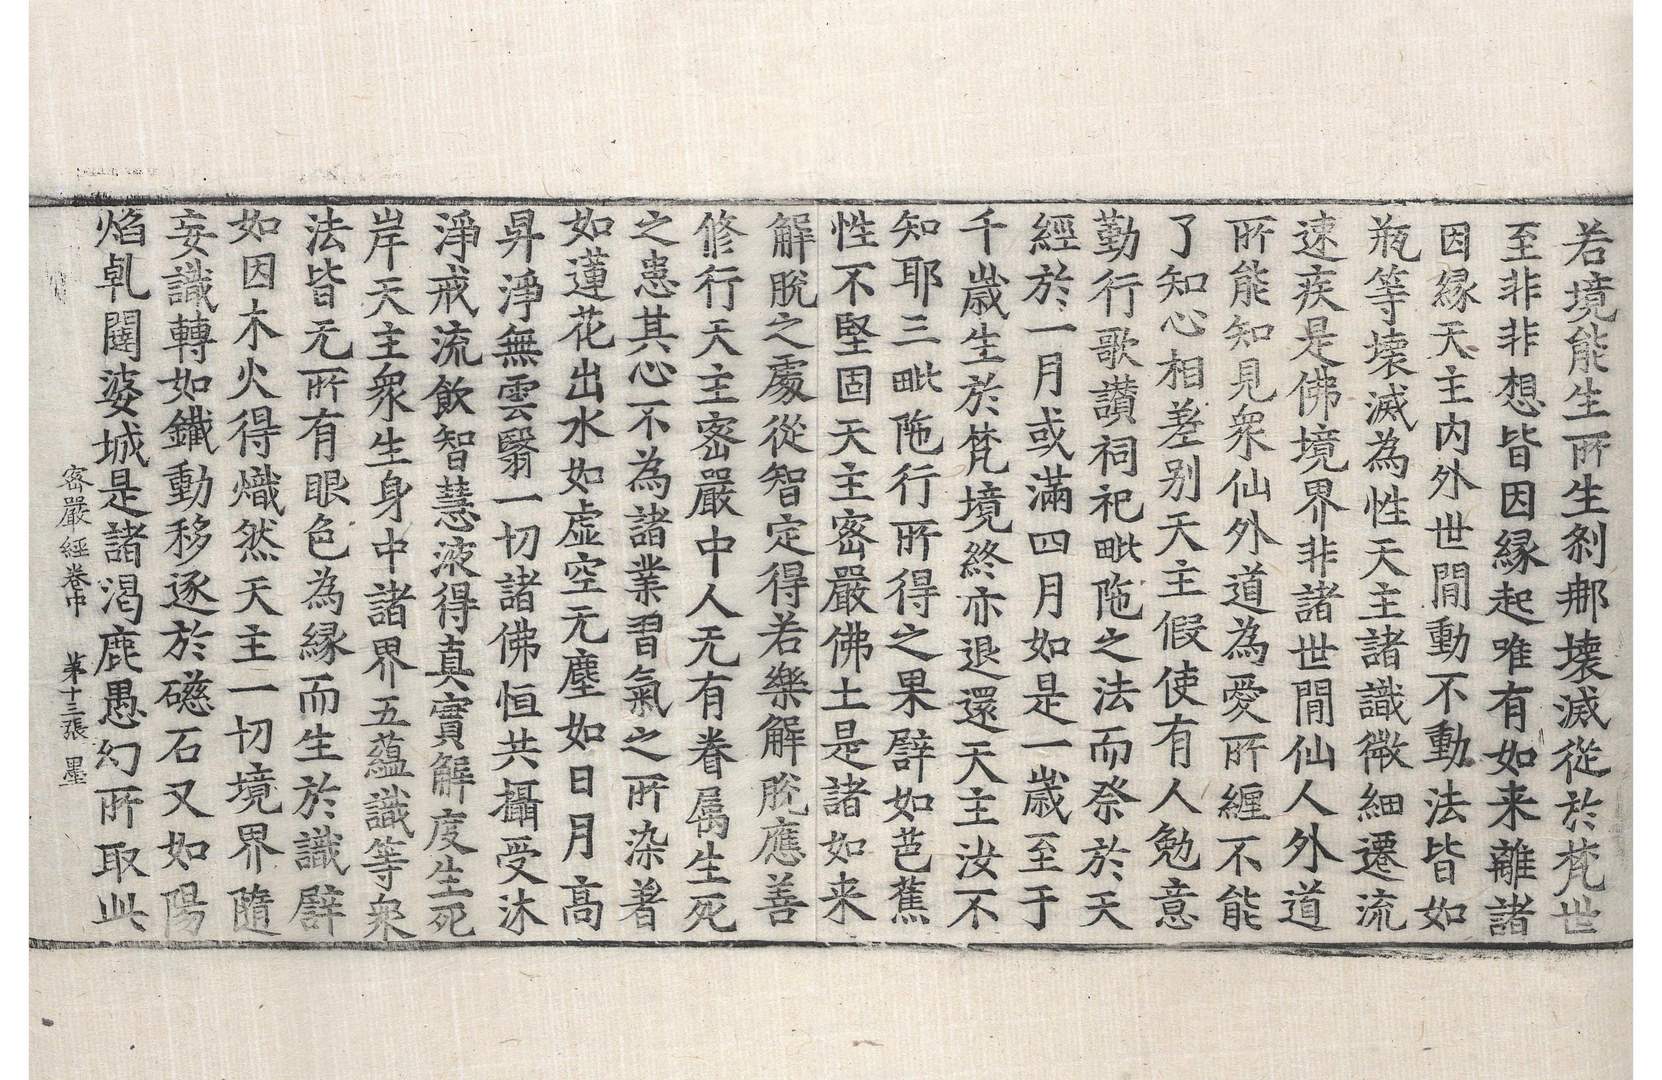 若境能生所生刹那壊滅從於梵世
至非非想皆因縁起唯有如来離諸
因縁天主内外世間動不動法皆如
瓶等壊滅為性天主諸識微細遷流
速疾是佛境界非諸世間仙人外道
所能知見衆仙外道為愛所纏不能
了知心相差别天主假使有人勉意
勤行歌讃祠祀毗陁之法而祭於天
經於一月或滿四月如是一歳至于
千歳生於梵境終亦退還天主汝不
知耶三毗陁行所得之果辟如芭蕉
性不堅固天主密嚴佛土是諸如来
解脱之處從智定得若樂解脱應善
修行天主密嚴中人无有眷属生死
之患其心不為諸業習氣之所染着
如蓮花出水如虚空无塵如日月高
昇淨無雲翳一切諸佛恒共攝受沐
淨戒流飲智慧液得真實解度生死
岸天主衆生身中諸界五藴識等衆
法皆无所有眼色為縁而生於識辟
如因木火得熾然天主一切境界隨
妄識轉如鐵動移逐於磁石又如陽
焰乹闥婆城是諸渇鹿愚幻所取此
密嚴經卷中 第十三張 墨